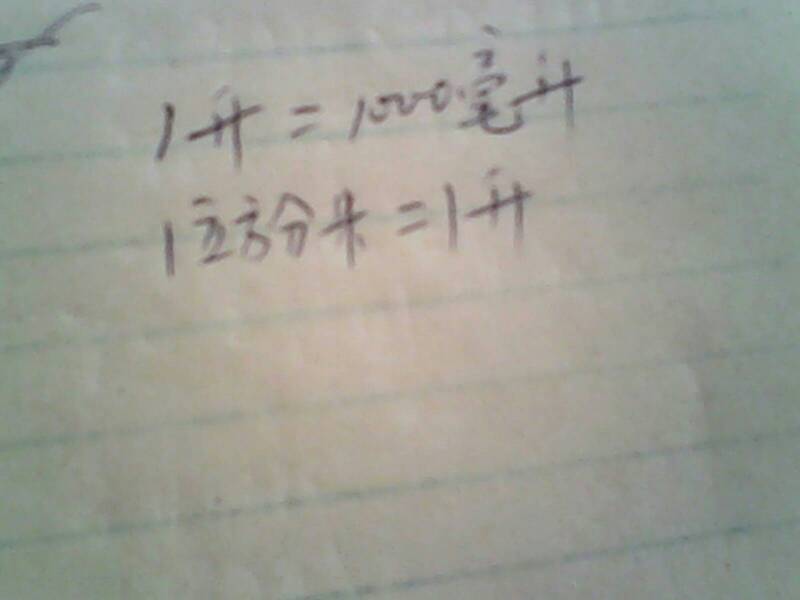 1升=1000毫升
1立方分米=1升